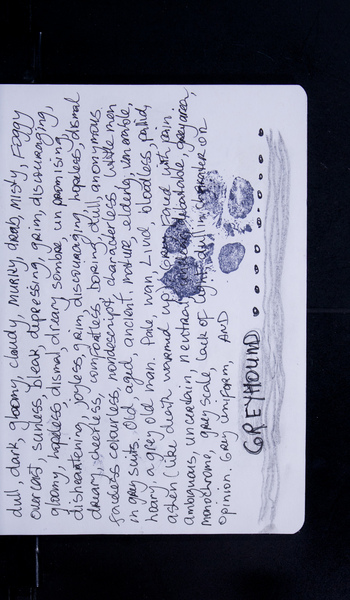 dull, dark, gloomy, cloudy, murky, drab, misty, Foggy
overcast, sunless, bleak, depressing, grim, discouraging,
gloomy, hopeless dismal dreary sombre unpromising,
disheartening, joyless, grim, discouraging hopeless, dismal
dreary, cheerless, comfortless boring dull, anonymous
faceless colourless, nondescript characterless. White men
in grey suits. Old, aged, ancient, mature, elderly, venerable,
hoary, a grey old man. Pale wan Livid bloodless, pallid,
ashen like death warmed up, Grey Faced with pain
ambiguous, uncertain, neutral debatable, grey area,
monochrome, greyscale, lack of light dull in on
opinion. Grey Uniform, AND
GREYHOUND